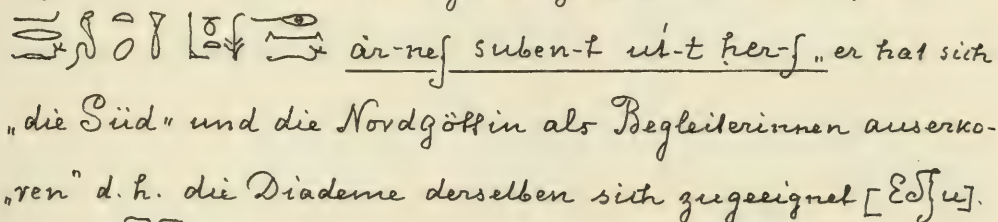 ȧr-nef suben-t uȧt-t ḥer-f „er hat sich
„die Süd" und die Nordgöttin als Begleiterinnen auserko-
„ren" d. h. die Diademe derselben sich zugeeignet